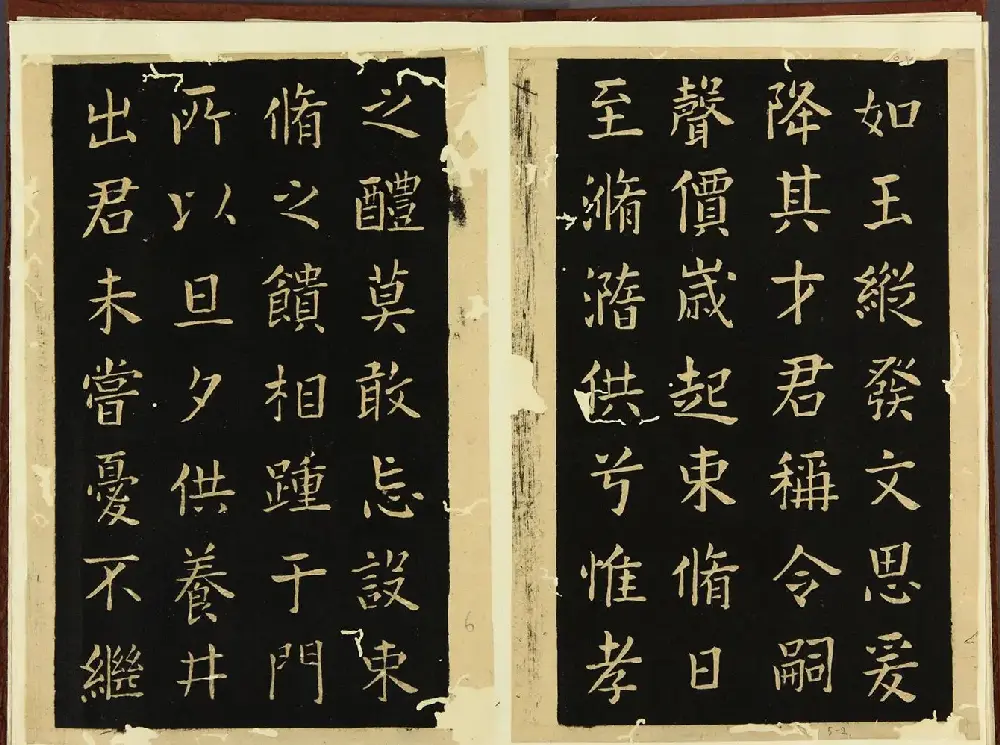 如王縱發文思爰
降其才君稱令嗣
聲價歲起束脩日
至滫瀡供兮惟孝
之醴莫敢忘設束
脩之饋相踵于門
所以旦夕供養井
出君未嘗憂不繼
6
5-2